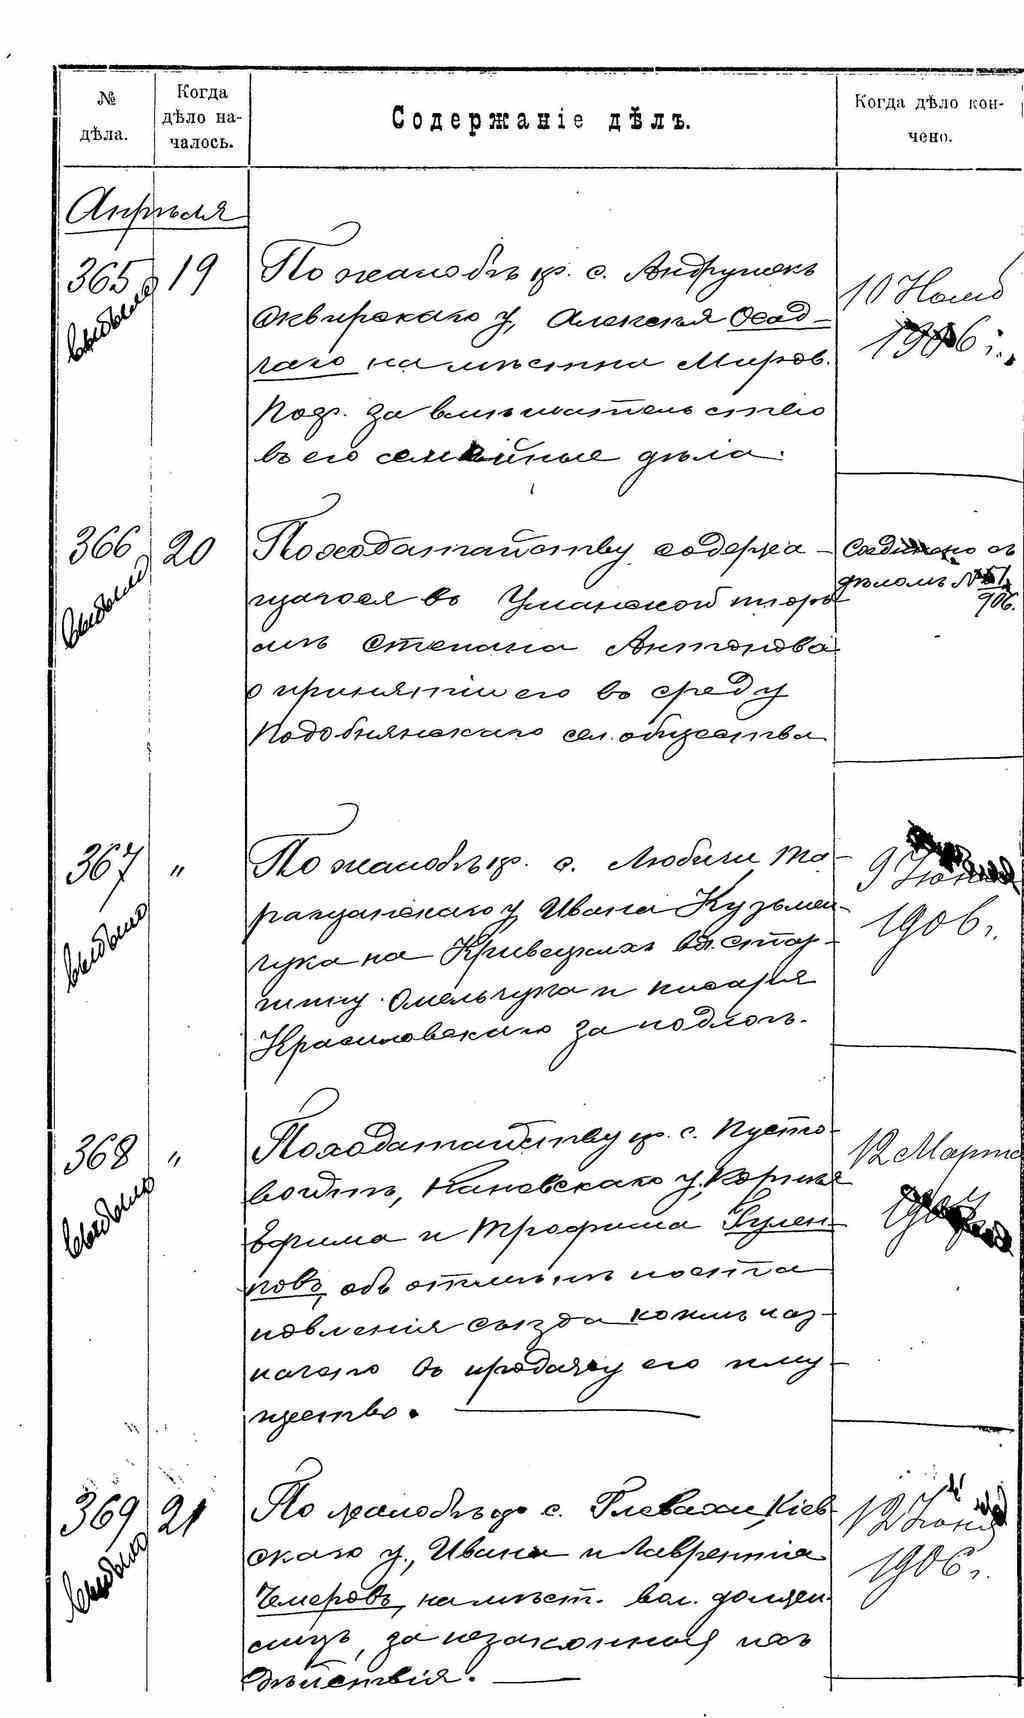 № дѣла.
Когда дѣло на-
чалось.
Содержаніе дѣлъ.
Когда дѣло кон-
чено.
Апрѣля
365 выбыло 19
По жалобѣ кр. с. Андрушекъ
Сквирскаго у, Алексѣя Осад-
чаго на мѣстна Миров.
Поср. за вмѣшательство
въ его семейные дѣла.
10 Нояб
1906 г.
366 выбыло 20
По ходатайству содержа-
щагося въ Уманской тюрь
мѣ Степана Антонова
о принятіи его въ среду
Подобнянскаго сел. общества
Соединено съ
дѣломъ №
906.
367 выбыло "
По жалобѣ кр. с. Любичи Та-
ращанскаго у Ивана Кузьмен-
чука на Кривецкихъ вол. стар-
шину Омельчука и писаря
Красиловскаго за подлогъ.
9 Іюня
1906 г.
368 выбыло "
По ходатайству кр. с. Пусто-
войтъ, Каневскаго у, Корнѣя
Ефима и Трофима Гулен-
ковъ, объ отмѣнѣ поста
новленія съѣзда коимъ наз-
начено въ продажу его иму-
щество.
12 Марта
1907
369 выбыло 21
По жалобѣ кр с. Глевахи, Кіев-
скаго у., Ивана и Лаврентія
Чемеровъ, на мѣст. вол. должн.
лицъ, за незаконныя ихъ
дѣйствія.
12 Іюня
1906 г.